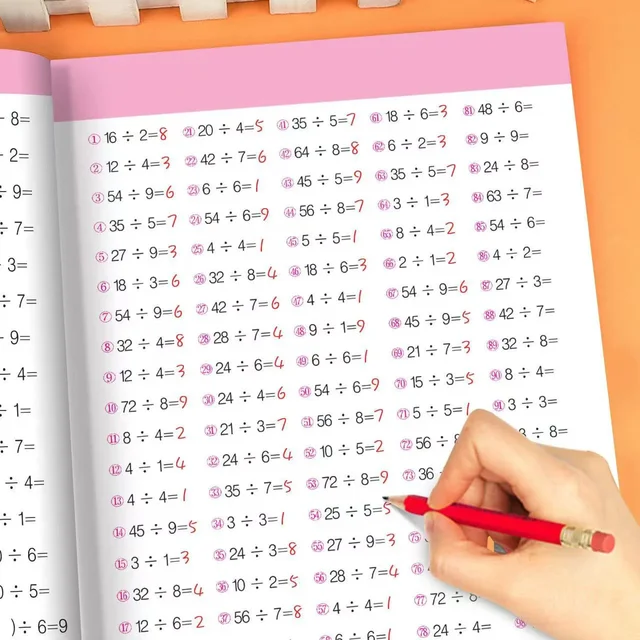 8=
2=
÷ 9=
÷ 7=
3=
÷ 7=
9=
÷ 4=
÷ 1=
÷ 7=
÷ 4=
÷ 1=
÷ 6=
÷ 5=
)÷ 6=9
① 16 ÷ 2=8
② 12 ÷ 4=3
③ 54 ÷ 9=6
④ 35 ÷ 5=7
⑤ 27 ÷ 9=3
⑥ 18 ÷ 3=6
⑦ 54 ÷ 9=6
⑧ 32 ÷ 4=8
⑨ 12 ÷ 4=3
⑩ 72 ÷ 8=9
⑪ 8 ÷ 4=2
⑫ 4 ÷ 1=4
⑬ 4 ÷ 4=1
⑭ 45 ÷ 9=5
⑮ 3 ÷ 1=3
⑯ 32 ÷ 8=4
⑰ 12 ÷ 6=2
㉑ 20 ÷ 4=5
㉒ 42 ÷ 7=6
㉓ 6 ÷ 6=1
㉔ 54 ÷ 6=9
㉕ 4 ÷ 4=1
㉖ 32 ÷ 8=4
㉗ 42 ÷ 7=6
㉘ 28 ÷ 7=4
㉙ 24 ÷ 6=4
㉚ 24 ÷ 4=6
㉛ 21 ÷ 3=7
㉜ 24 ÷ 6=4
㉝ 35 ÷ 7=5
㉞ 3 ÷ 3=1
㉟ 24 ÷ 3=8
㊱ 10 ÷ 2=5
㊲ 56 ÷ 7=8
㊶ 35 ÷ 5=7
㊷ 64 ÷ 8=8
㊸ 45 ÷ 5=9
㊹ 56 ÷ 8=7
㊺ 5 ÷ 5=1
㊻ 18 ÷ 6=3
㊼ 4 ÷ 4=1
㊽ 9 ÷ 1=9
㊾ 6 ÷ 6=1
㊿ 54 ÷ 6=9
51 56 ÷ 8=7
52 10 ÷ 5=2
53 72 ÷ 8=9
54 25 ÷ 5=5
55 27 ÷ 9=3
56 28 ÷ 7=4
57 4 ÷ 4=1
6 ÷ 6=1
61 18 ÷ 6=3
62 6 ÷ 2=3
63 35 ÷ 5=7
64 3 ÷ 1=3
65 8 ÷ 4=2
66 2 ÷ 1=2
67 54 ÷ 9=6
68 45 ÷ 9=5
69 21 ÷ 7=3
70 15 ÷ 3=5
71 5 ÷ 5=1
72 56 ÷
73 36
75
76
77 72 ÷
78 24 ÷ 4=
81 48 ÷ 6=
82 9 ÷ 9=
83 24 ÷ 8=
84 63 ÷ 7=
85 54 ÷ 6=
86 4 ÷ 2=
87 27 ÷ 3=
88 42 ÷ 7=
89 32 ÷ 8=
90 8 ÷ 4=
91 3 ÷ 3=
÷ 8=
98